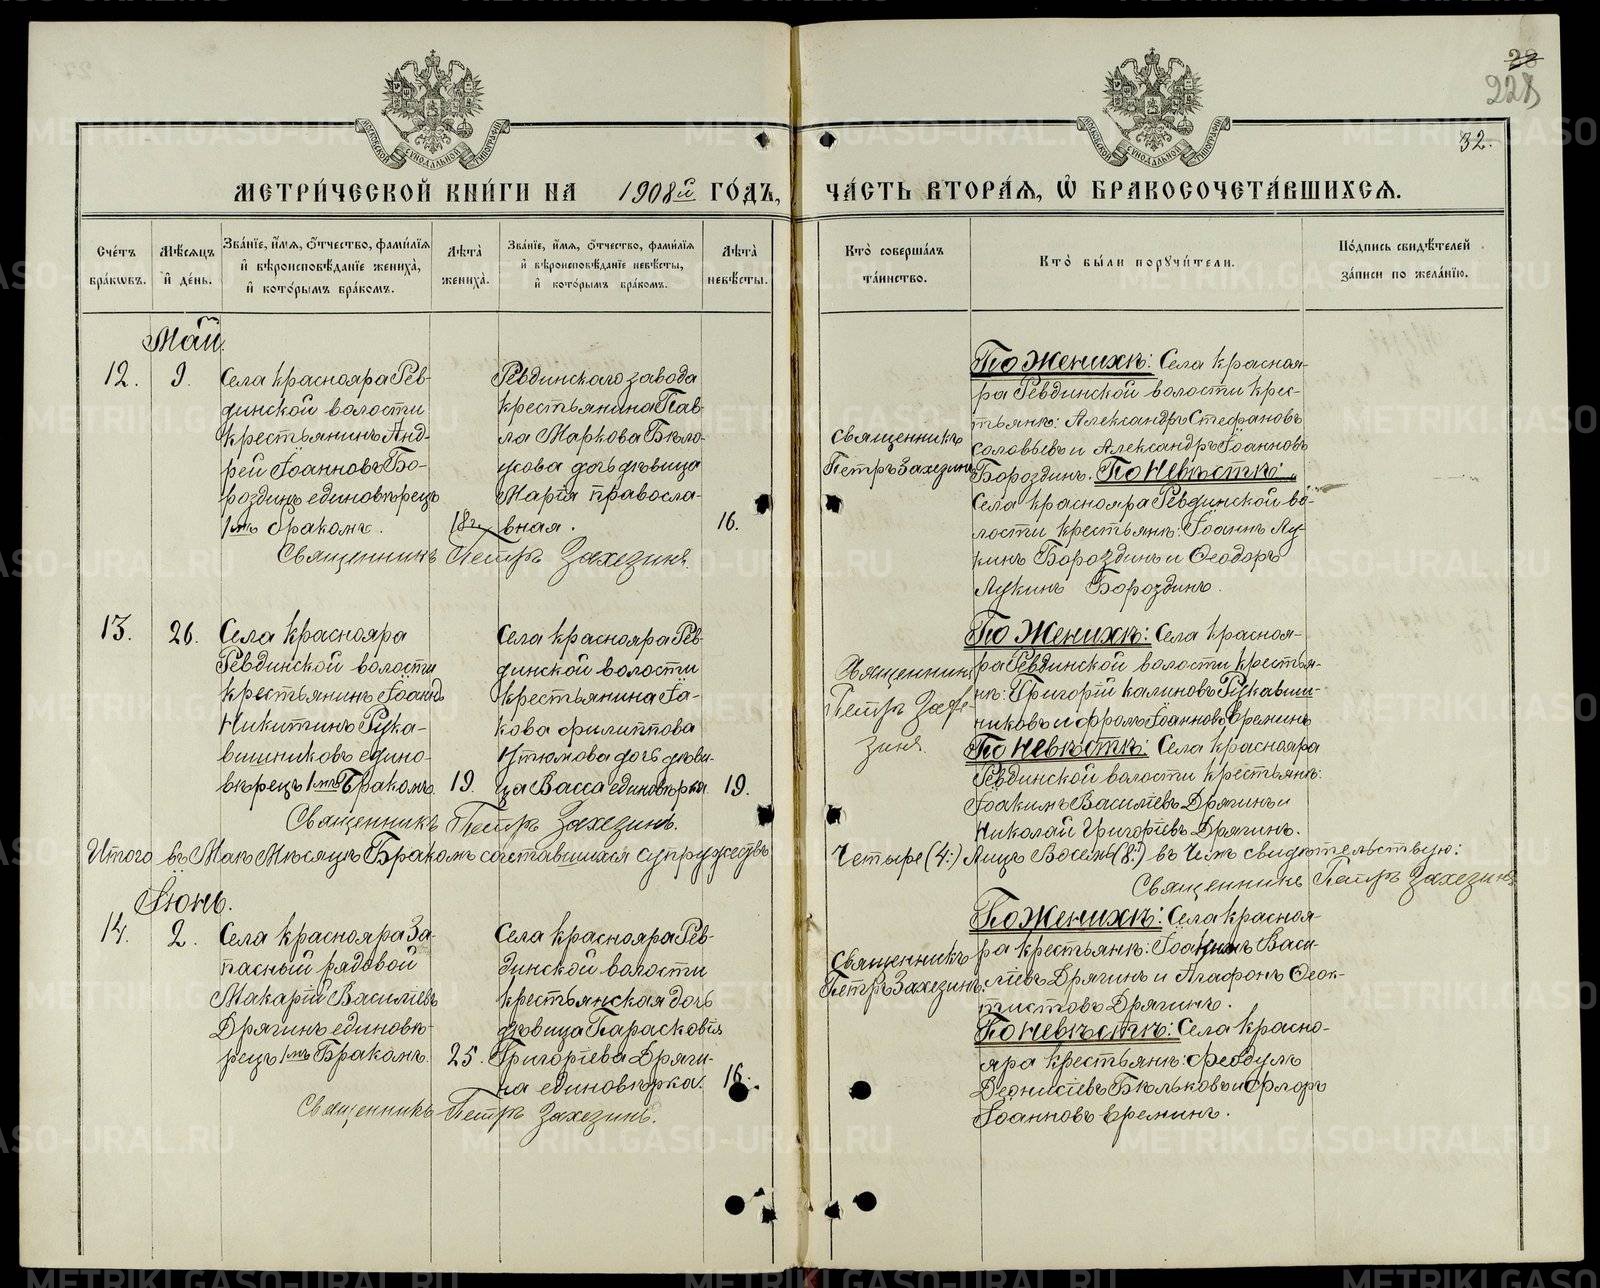 28
228
32.
МЕТРИ́ЧЕСКОЙ КНИ́ГИ НА 1908й ГО́ДЪ,
ЧА́СТЬ ВТОРА́Ѧ, Ѽ БРАКОСОЧЕТА́ВШИХСѦ.
Сче́тъ бра́кѡвъ.
Мѣ́сѧцъ и҆ де́нь.
Зва́нїе, и҆́мѧ, ѻ҆́тчество, фами́лїѧ и҆ вѣроисповѣ́данїе жениха̀, и҆ кото́рымъ бра́комъ.
Лѣ́та̀ жениха̀.
Зва́нїе, и҆́мѧ, ѻ҆́тчество, фами́лїѧ и҆ вѣроисповѣ́данїе невѣ́сты, и҆ кото́рымъ бра́комъ.
Лѣ́та̀ невѣ́сты.
Кто̀ соверша́лъ та́инство.
Кто̀ бы́ли порꙋчи́тели.
По́дпись свидѣ́телей за́писи по жела́нїю.
Май.
12.
9.
Села Краснояра Рев-
динской волости
крестьянинъ Анд-
рей Іоанновъ Бо-
роздинъ единовѣрецъ
1мъ бракомъ.
18
Ревдинскаго завода
крестьянина Пав-
ла Маркова Бѣло-
усова дочь дѣвица
Марія правосла-
вная.
16.
Священникъ Петръ Захезинъ.
Священникъ
Петръ Захезинъ
По Женихѣ: Села Красноя-
ра Ревдинской волости крес-
тьянѣ: Александръ Стефановъ
Соловьевъ и Александръ Іоанновъ
Бороздинъ. По Невѣстѣ:
Села Краснояра Ревдинской во-
лости крестьянѣ: Іоаннъ Лу-
кинъ Бороздинъ и Ѳеодоръ
Лукинъ Бороздинъ.
13.
26.
Села Краснояра
Ревдинской волости
крестьянинъ Іоаннъ
Никитинъ Рука-
вишниковъ едино-
вѣрецъ 1мъ Бракомъ.
19.
Села Краснояра Рев-
динской волости
крестьянина Іа-
кова Филиппова
Утюмова дочь дѣви-
ца Васса единовѣрка
19.
Священникъ Петръ Захезинъ.
Священникъ
Петръ Захе-
зинъ.
По Женихѣ: Села Красноя-
ра Ревдинской волости крестья-
нѣ: Григорій Калиновъ Рукавиш-
никовъ и Фролъ Іоанновъ Еремин
По Невѣстѣ: Села Краснояра
Ревдинской волости крестьянѣ:
Іоакимъ Василіевъ Дрягинъ и
Николай Григоріевъ Дрягинъ.
Итого въ Маѣ Мѣсяцѣ Бракомъ сочетавшихся супружествъ Четыре (4:) Лицъ Восемь (8:) въ чемъ свидѣтельствую:
Священникъ Петръ Захезинъ
Іюнь.
14.
2.
Села Краснояра За-
пасный рядовой
Макарій Василіевъ
Дрягинъ единовѣ-
рецъ 1мъ Бракомъ.
25.
Села Краснояра Рев-
динской волости
крестьянская дочь
дѣвица Парасковія
Григоріева Дряги-
на единовѣрка.
16.
Священникъ Петръ Захезинъ.
Священникъ
Петръ Захезинъ.
По Женихѣ: Села Красноя-
ра крестьянѣ: Іоакимъ Васи-
ліевъ Дрягинъ и Агафонъ Ѳеок-
тистовъ Дрягинъ.
По Невѣстѣ: Села Красно-
яра крестьянѣ: Феодулъ
Деонисіевъ Бѣльковъ и Флоръ
Іоанновъ Ереминъ.
METRIKI.GASO-URAL.RU